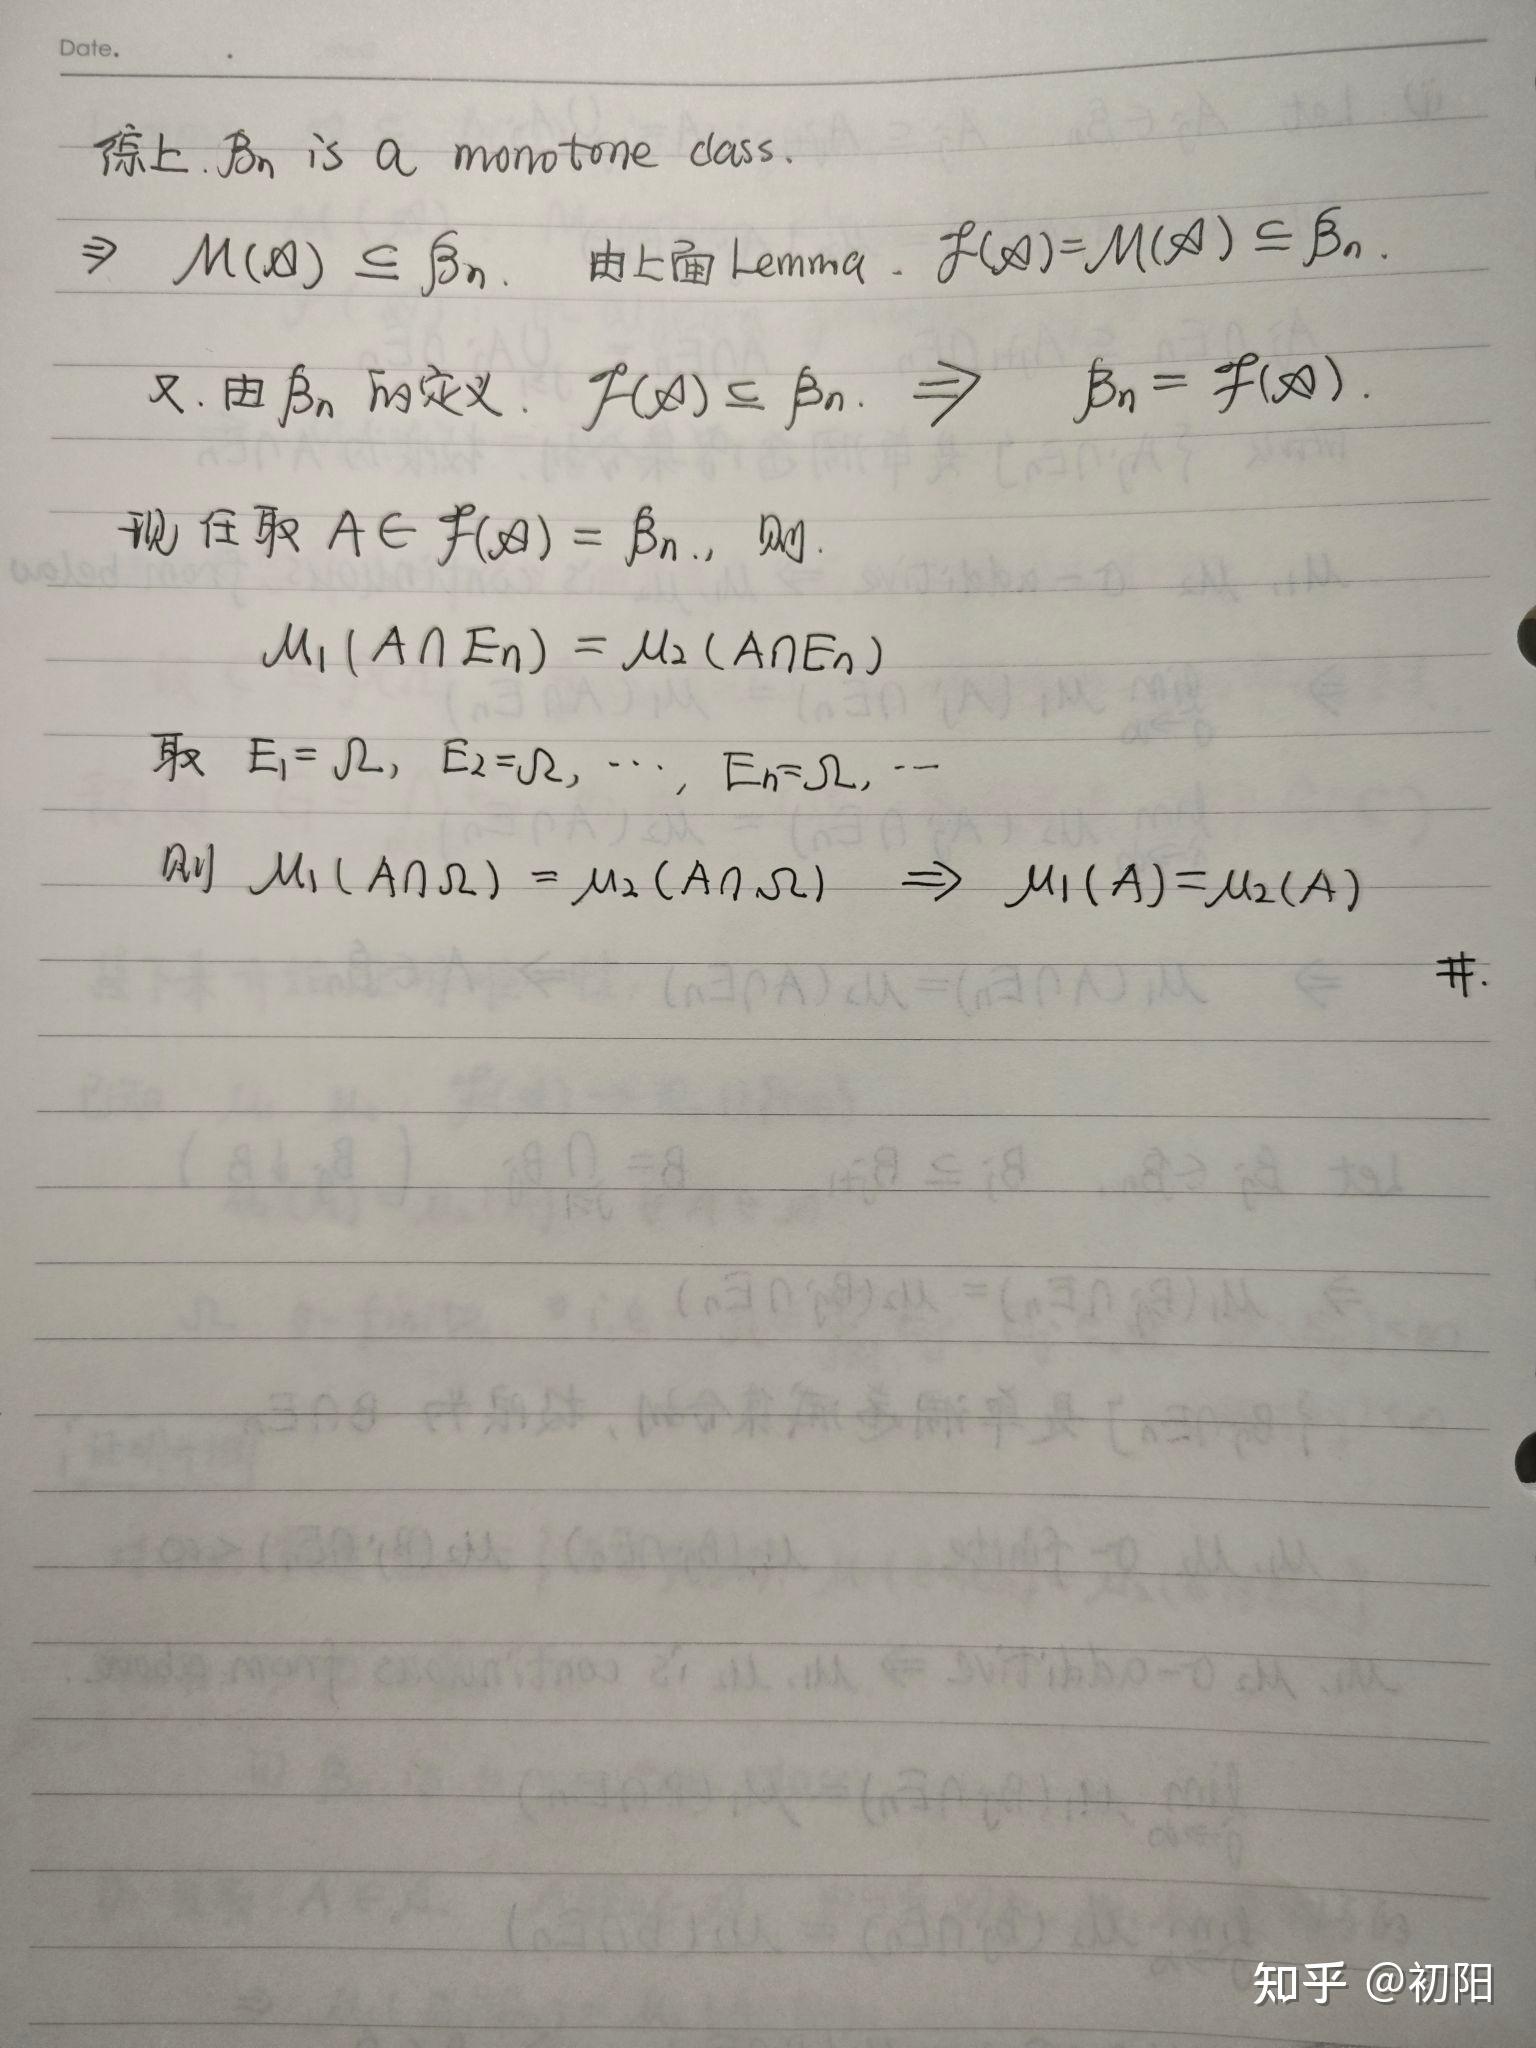 Date. .
综上. βn is a monotone class.
⇒ M(A) ⊆ βn. 由上面 Lemma. F(A)=M(A) ⊆ βn.
又. 由 βn 的定义. F(A) ⊆ βn. ⇒ βn = F(A).
现 任取 A ∈ F(A) = βn., 则.
μ1(A∩En) = μ2(A∩En)
取 E1=Ω, E2=Ω, ⋯, En=Ω, ⋯
则 μ1(A∩Ω) = μ2(A∩Ω) ⇒ μ1(A)=μ2(A)
#.
知乎 @初阳